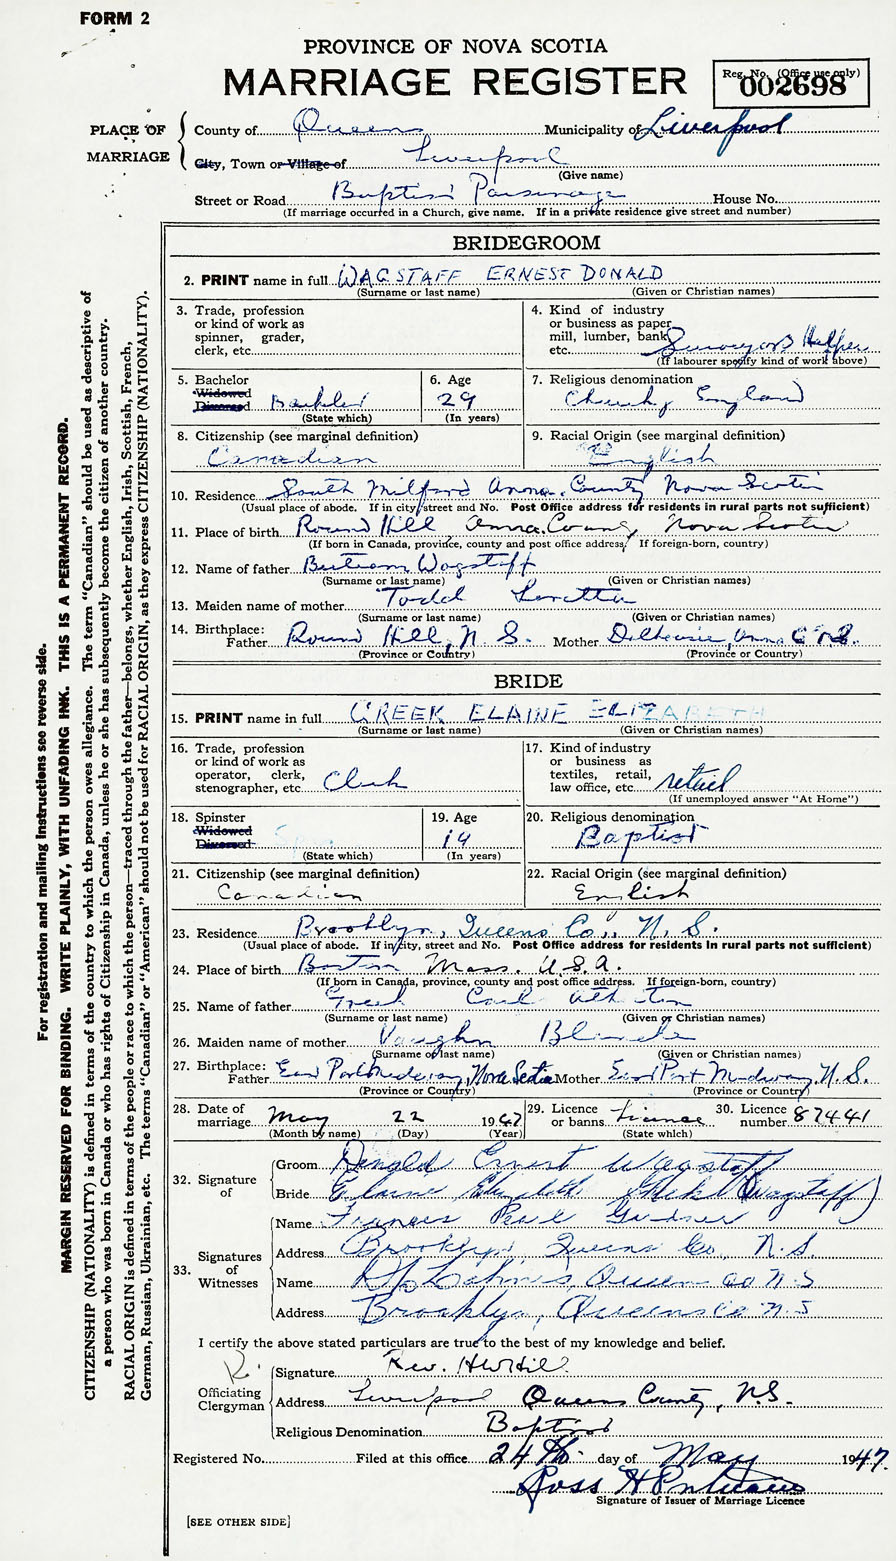 FORM 2
PROVINCE OF NOVA SCOTIA
MARRIAGE REGISTER
Reg. No. (Office use only)
002698
PLACE OF MARRIAGE
County of Queens Municipality of Liverpool
City, Town or Village of Liverpool
(Give name)
Street or Road Baptist Parsonage House No.
(If marriage occurred in a Church, give name. If in a private residence give street and number)
BRIDEGROOM
2. PRINT name in full WAGSTAFF ERNEST DONALD
(Surname or last name) (Given or Christian names)
3. Trade, profession or kind of work as spinner, grader, clerk, etc.
4. Kind of industry or business as paper mill, lumber, bank, etc. Surveyors Helper
(If labourer specify kind of work above)
5. Bachelor Widowed Divorced Bachelor
(State which)
6. Age 29
(In years)
7. Religious denomination
Church of England
8. Citizenship (see marginal definition)
Canadian
9. Racial Origin (see marginal definition)
English
10. Residence South Milford Anna. County Nova Scotia
(Usual place of abode. If in city street and No. Post Office address for residents in rural parts not sufficient)
11. Place of birth Round Hill Anna. County Nova Scotia
(If born in Canada, province, county and post office address. If foreign-born, country)
12. Name of father Wagstaff
(Surname or last name) (Given or Christian names)
13. Maiden name of mother Todd Loretta
(Surname or last name) (Given or Christian names)
14. Birthplace: Father Round Hill, N. S. Mother Dalhousie, Anna C N.S.
(Province or Country) (Province or Country)
BRIDE
15. PRINT name in full GREEK ELAINE ELIZABETH
(Surname or last name) (Given or Christian names)
16. Trade, profession or kind of work as operator, clerk, stenographer, etc Clerk
17. Kind of industry or business as textiles, retail, law office, etc. retail
(If unemployed answer "At Home")
18. Spinster Widowed Divorced
(State which)
19. Age 19
(In years)
20. Religious denomination
Baptist
21. Citizenship (see marginal definition)
Canadian
22. Racial Origin (see marginal definition)
English
23. Residence Brooklyn, Queens Co., N. S.
(Usual place of abode. If in city, street and No. Post Office address for residents in rural parts not sufficient)
24. Place of birth Boston Mass. U.S.A.
(If born in Canada, province, county and post office address. If foreign-born, country)
25. Name of father Greek Carl
(Surname or last name) (Given or Christian names)
26. Maiden name of mother Vaughn Blanche
(Surname of last name) (Given or Christian names)
27. Birthplace: Father East Port Medway, Nova Scotia Mother East Port Medway, N. S.
(Province or Country) (Province or Country)
28. Date of marriage May 22 1947
(Month by name) (Day) (Year)
29. Licence or banns Licence
(State which)
30. Licence number 87441
32. Signature of
Groom Donald Ernest Wagstaff
Bride Elaine Elizabeth Greek (Wagstaff)
33. Signatures of Witnesses
Name Frances Pearl
Address Brooklyn, Queens Co., N. S.
Name Queens Co N.S
Address Brooklyn, Queens Co N.S
I certify the above stated particulars are true to the best of my knowledge and belief.
Officiating Clergyman
Signature Rev. H W Hill
Address Liverpool Queens County, N.S.
Religious Denomination Baptist
Registered No. Filed at this office 24th day of May 1947.
Ross H
Signature of Issuer of Marriage Licence
[SEE OTHER SIDE]
For registration and mailing instructions see reverse side.
MARGIN RESERVED FOR BINDING. WRITE PLAINLY, WITH UNFADING INK. THIS IS A PERMANENT RECORD.
CITIZENSHIP (NATIONALITY) is defined in terms of the country to which the person owes allegiance. The term "Canadian" should be used as descriptive of
a person who was born in Canada or who has rights of Citizenship in Canada, unless he or she has subsequently become the citizen of another country.
RACIAL ORIGIN is defined in terms of the people or race to which the person—traced through the father—belongs, whether English, Irish, Scottish, French,
German, Russian, Ukrainian, etc. The terms "Canadian" or "American" should not be used for RACIAL ORIGIN, as they express CITIZENSHIP (NATIONALITY).